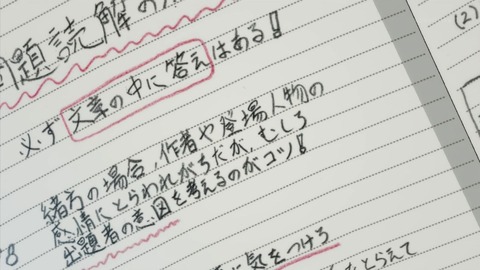 問題読解の
必ず文章の中に答えはある!
(2)
緒方の場合、作者や登場人物の
感情にとらわれがちだが、むしろ
出題者の意図を考えるのがコツ!
に気をつけろ
とらえて